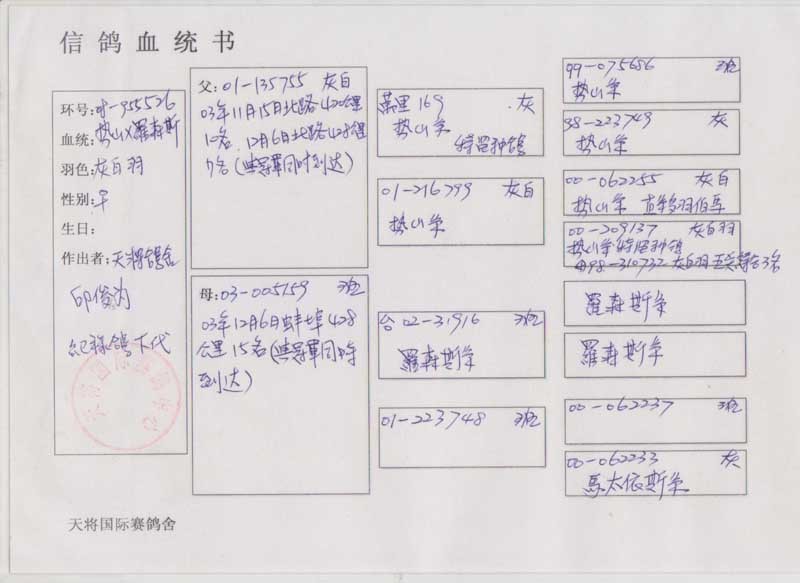 信鸽血统书
环号:04-955526
血统:势山X羅森斯
羽色:灰白羽
性别:♀
生日:
作出者:天将鸽舍
印俊为
纪标鸽下代
父:01-135755 灰白
03年11月15日北路420公里
12名 12月6日北路428公里
7名(与冠軍同时到达)
母:03-005159 斑
03年12月6日蚌埠428
公里15名(与冠軍同时
到达)
萬里169 灰
势山系
特留种鸽
01-216799 灰白
势山系
合02-31916 斑
羅森斯系
01-223748 斑
99-075686 斑
势山系
98-223749 灰
势山系
00-062255 灰白
势山系
00-209137 灰白羽
势山系特留种鸽
母98-310732 灰白羽
羅森斯系
羅森斯系
00-062237 斑
00-062233 灰
馬太依斯系
天将国际赛鸽舍